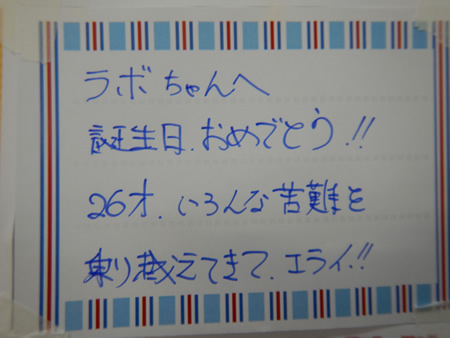 ラボちゃんへ
誕生日.おめでとう!!
26才.いろんな苦難を
乗り越えてきて.エライ!!